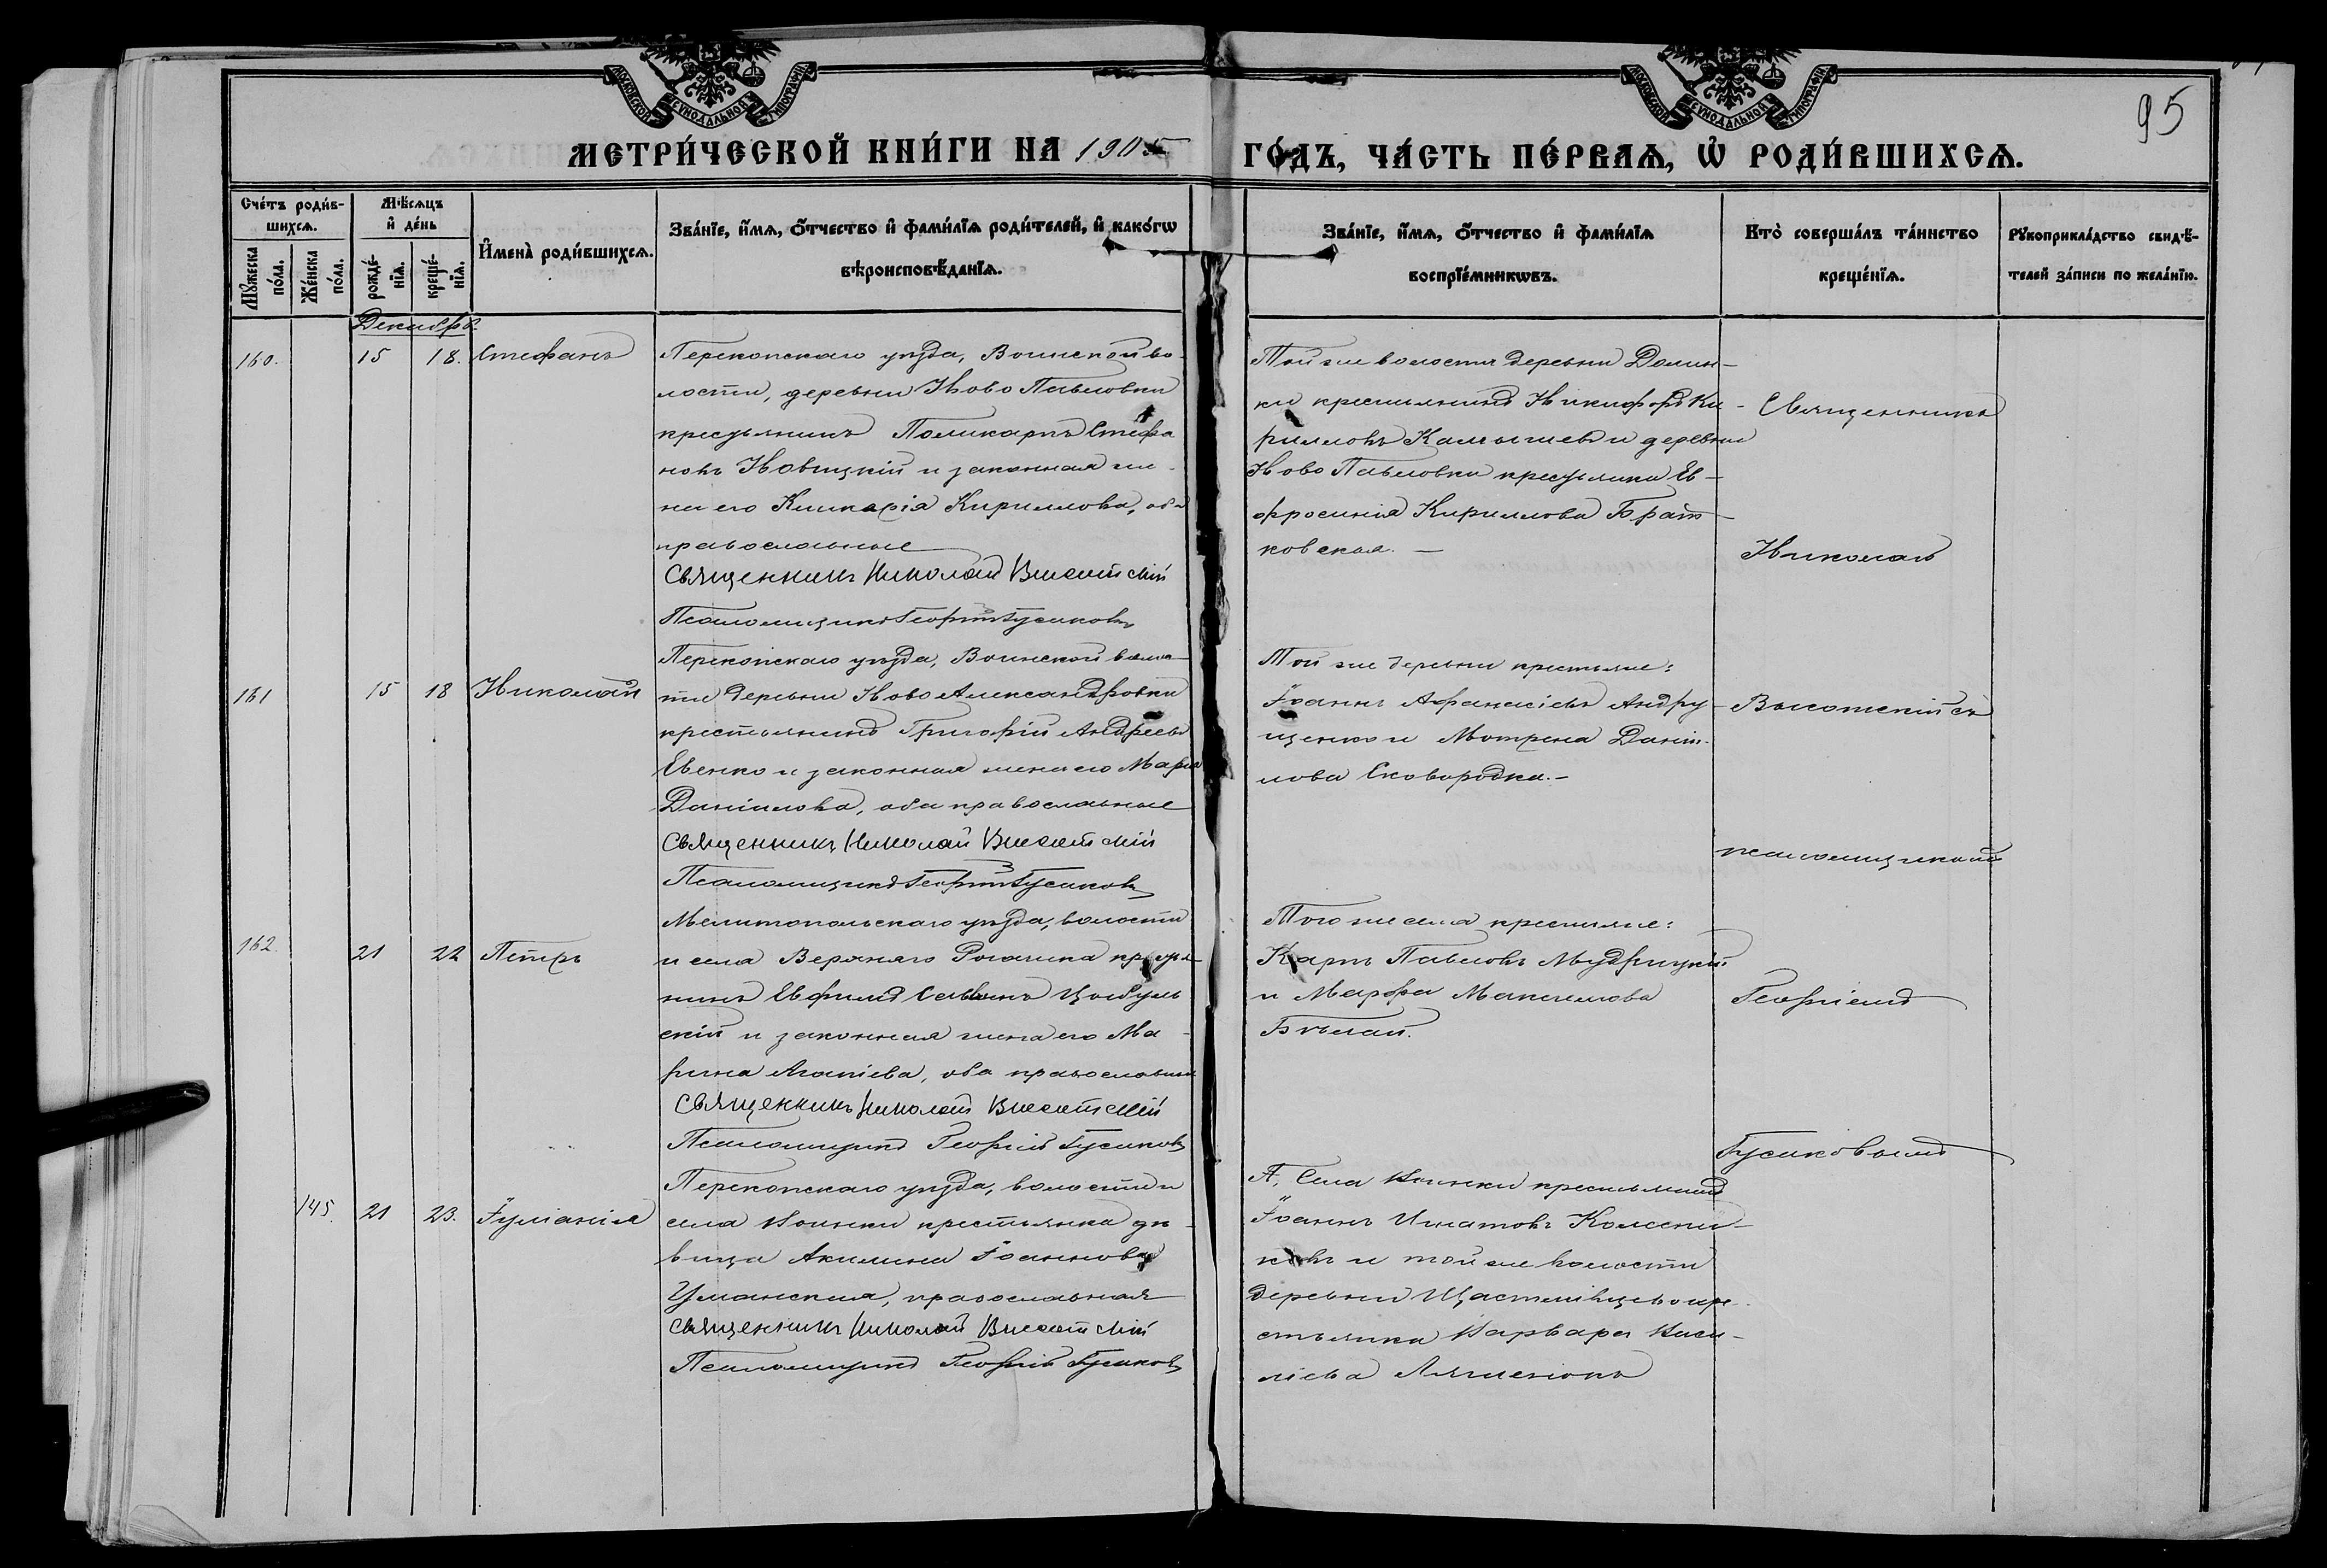 МОСКОВСКОЙ СΥНОДАЛЬНОЙ ТИПОГРАФІИ
МОСКОВСКОЙ СΥНОДАЛЬНОЙ ТИПОГРАФІИ
95
МЕТРИ́ЧЕСКОЙ КНИ́ГИ НА 1905 ГО́ДЪ, ЧА́СТЬ ПЕ́РВАѦ, Ѡ҆ РОДИ́ВШИХСѦ.
Сче́тъ роди́в-
шихсѧ.
Мꙋжеска по́ла.
Же́нска по́ла.
Мѣ́сѧцъ
и҆ де́нь
рожде́-
нїѧ.
креще́-
нїѧ.
И҆мена̀ роди́вшихсѧ.
Зва́нїе, и҆́мѧ, о҆́тчество и҆ фами́лїѧ роди́телей, и҆ како́гѡ
вѣроисповѣ́данїѧ.
Зва́нїе, и҆́мѧ, о҆́тчество и҆ фами́лїѧ
воспрїе́мникѡвъ.
Кто̀ соверша́лъ та́инство
креще́нїѧ.
Рꙋкоприкла́дство свидѣ́-
телей за́писи по жела́нїю.
Декабрь
160. 15 18. Стефанъ
Перекопскаго уѣзда, Воинской во-
лости, деревни Ново Павловки
крестьянинъ Поликарпъ Стефа
новъ Новицкій и законная же-
на его Кириллова, оба
православные
Священникъ Николай Высотскій
Псаломщикъ Георгій Гусаковъ
Той же волости деревни Долин-
ки крестьянинъ Никифоръ Ки-
рилловъ Камышевъ и деревни
Ново Павловки крестьянка Ев-
фросинія Кириллова Брат-
ковская. —
161 15 18 Николай
Перекопскаго уѣзда, Воинской волос-
ти деревни Ново Александровки
крестьянинъ Григорій Андреевъ
Евенко и законная жена его Марія
Даніилова, оба православные
Священникъ Николай Высотскій
Псаломщикъ Георгій Гусаковъ
Той же деревни крестьяне:
Іоаннъ Афанасіевъ Андру-
щенко и Мотрена Даніи-
лова Сковородка. —
162. 21 22 Петръ
Мелитопольскаго уѣзда, волости
и села Верхняго Рогачика крестья-
нинъ Евфимъ Саввинъ Цыбуль
скій и законная жена его Ма-
рина Агапіева, оба православные
Священникъ Николай Высотскій
Псаломщикъ Георгій Гусаковъ
Того же села крестьяне:
Карпъ Павловъ Мудрицкій
и Марфа Максимова
Бѣлай.
145. 21 23. Іуліанія
Перекопскаго уѣзда, волости и
села Воинки крестьянка дѣ-
вица Акилина Іоаннова
Уманская, православная
Священникъ Николай Высотскій
Псаломщикъ Георгій Гусаковъ
Села Воинки крестьянинъ
Іоаннъ Игнатовъ Колесни-
ковъ и той же волости
деревни Щастливцево кре-
стьянка Варвара Васи-
ліева Ляшенокъ
Священникъ
Николай
Высотскій съ
псаломщикомъ
Георгіемъ
Гусаковымъ